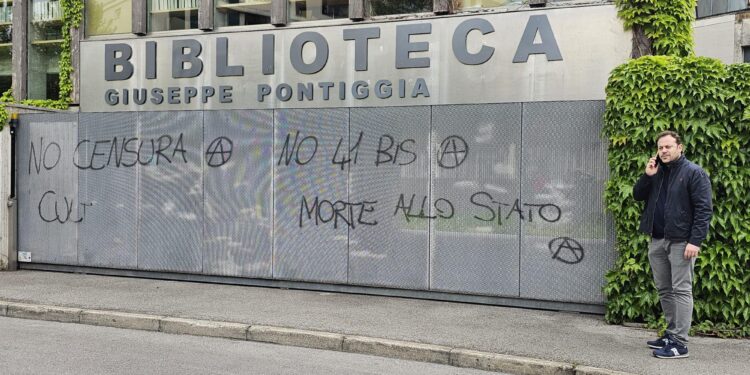 BIBLIOTECA
GIUSEPPE PONTIGGIA
NO CENSURA Ⓐ NO 41 BIS Ⓐ
CULT MORTE ALLO STATO
Ⓐ